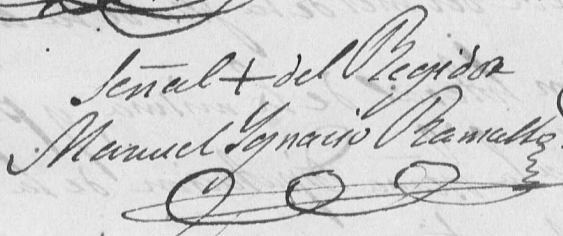 Señal + del Regidor
Manuel Ygnacio Ramallo